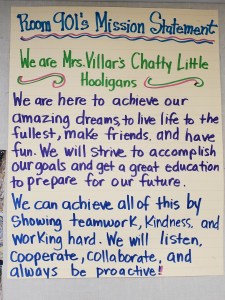 Room 901's Mission Statement
We are Mrs. Villar's Chatty Little
Hooligans
We are here to achieve our
amazing dreams, to live life to the
fullest, make friends, and have
fun. We will strive to accomplish
our goals and get a great education
to prepare for our future.
We can achieve all of this by
showing teamwork, kindness, and
working hard. We will listen,
cooperate, collaborate, and
always be proactive!